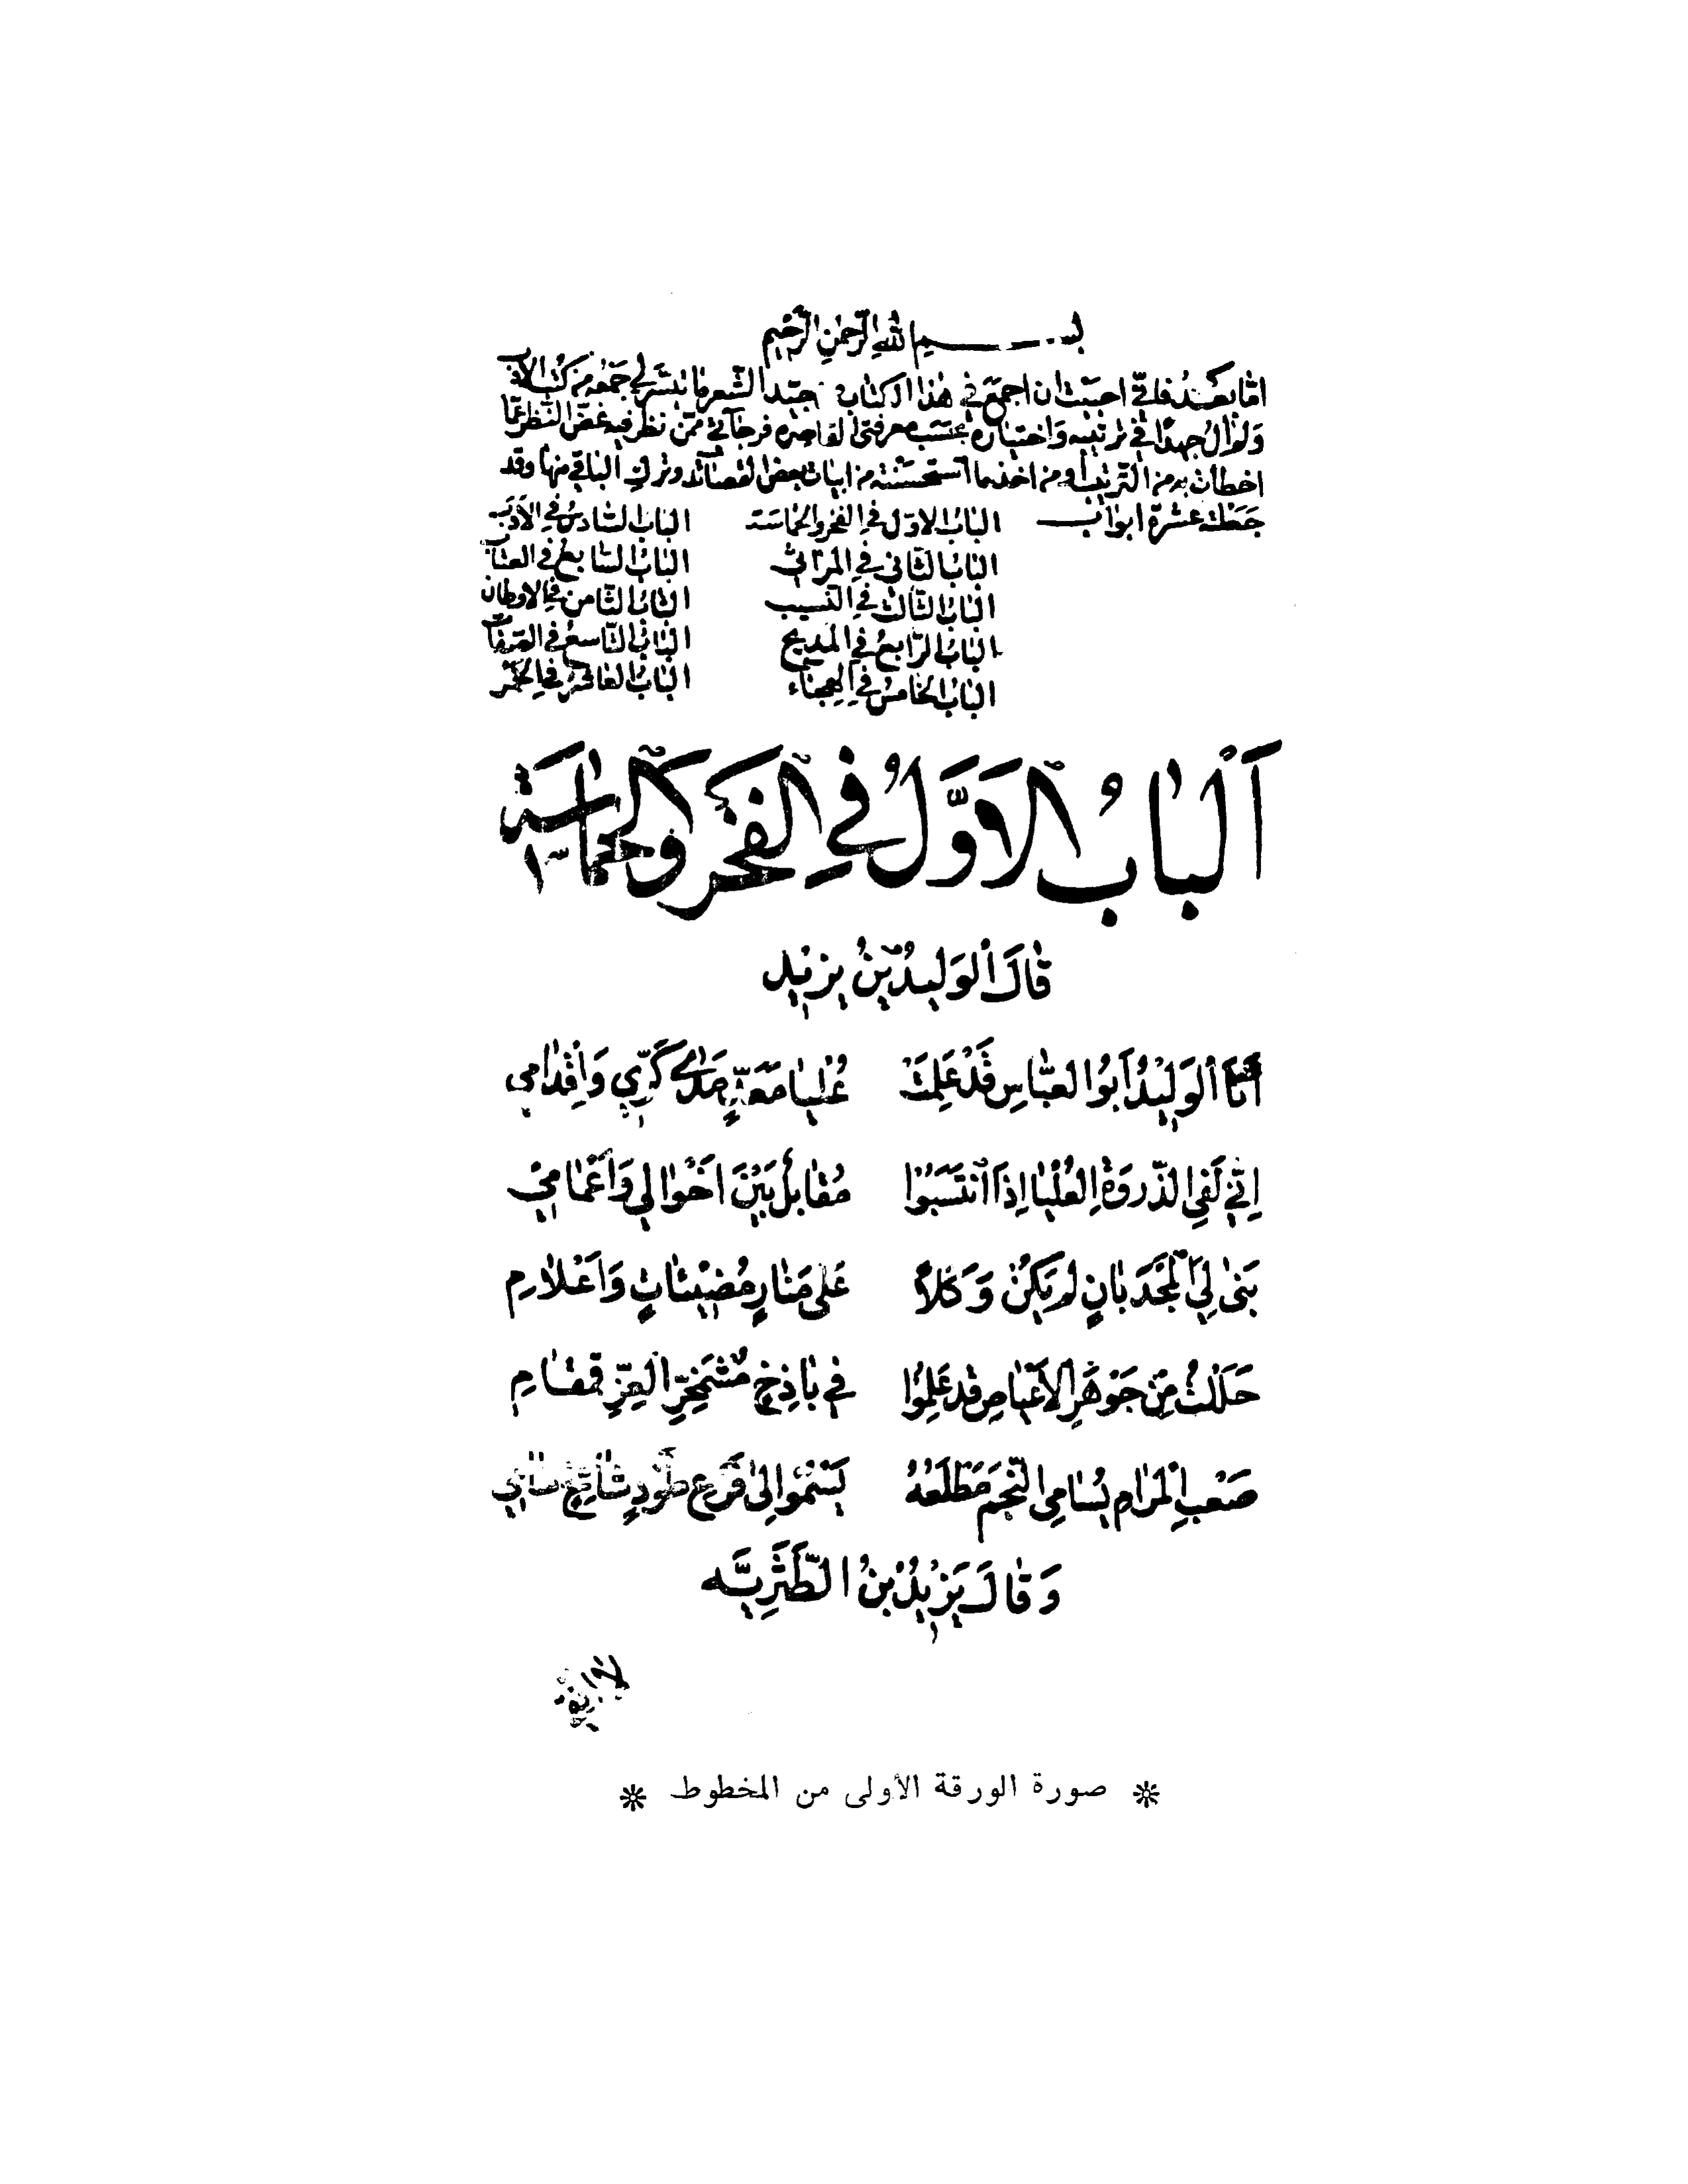 بسم الله الرحمن الرحيم
اما بعد فاني احببت ان اجمع في هذا الكتاب جيد الشعر ما تيسر لي جمعه من كتب الادب
ولم آل جهدا في ترتيبه واختياره بحسب معرفتي القاصره فرجائي ممن نظر فيه غض النظر عما
اخطات به من الترتيب او من اخذ ما استحسنته من ابيات بعض القصائد وترك الباقي منها وقد
جعلته عشرة ابواب
الباب الاول في الفخر والحماسة
الباب الثاني في المراثي
الباب الثالث في النسيب
الباب الرابع في المديح
الباب الخامس في الهجاء
الباب السادس في الأدب
الباب السابع في العتاب
الباب الثامن في الاوطان
الباب التاسع في الصفات
الباب العاشر في الخمر
اَلْبابُ الاَوَّلُ في الفخر والحماسة
قالَ الوَليدُ بْنُ يزيد
أنَا الْوَليْدُ اَبُوا العبَّاسِ قَدْ عَلِمَتْ عُليا مَعَدٍّ مَدى كَرِّي وَاِقْدامي
اِنّي لَفِي الذّروَةِ العُلْيا اِذَا انْتَسَبُوْا مُقابلٌ بَيْنَ اَخْوالي وَاَعْمامي
بَنى لِيَ الْمَجْدَ بانٍ لم يَكُنْ وَكَلاً عَلى مَنارٍ مُضيْئاتٍ وَاَعْلامِ
حَلَلْتُ مِنْ جَوْهَرِ الاَعْياصِ قد عَلِمُوا في باذِخٍ مُشْمَخِرِّ العِزِّ قمقامِ
صَعْبِ الْمَرامِ يُسَامِي النّجمَ مَطْلَعُهُ يَسْمُوْا اِلى فَرْعِ طَوْدٍ شامِخٍ سامي
وَقالَ يَزيْدُ بنُ الطَّثَرِيَّه
✼ صورة الورقة الأولى من المخطوط ✼